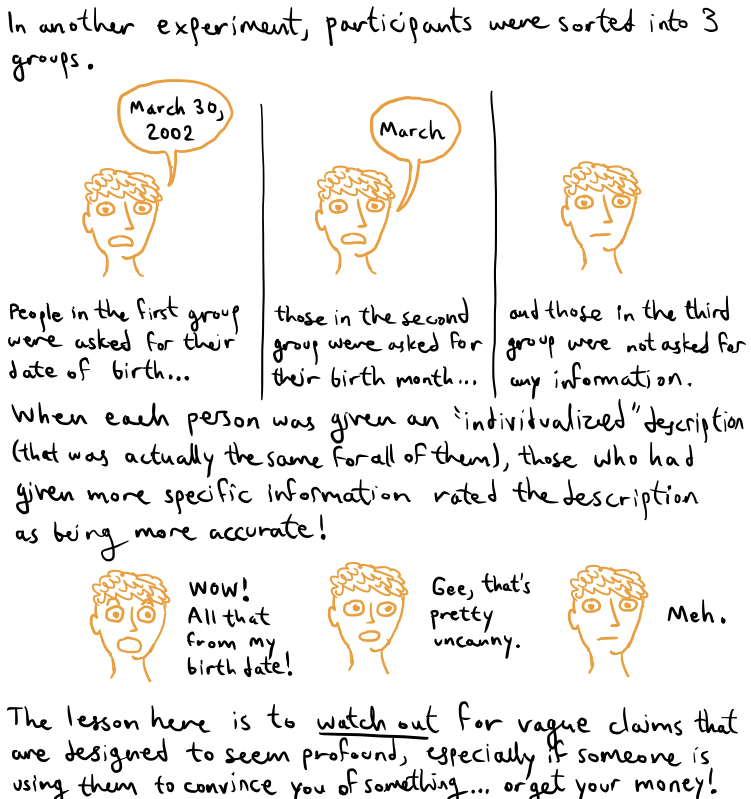 In another experiment, participants were sorted into 3
groups.
March 30,
2002
March
People in the first group
were asked for their
date of birth...
those in the second
group were asked for
their birth month...
and those in the third
group were not asked for
any information.
When each person was given an "individualized" description
(that was actually the same for all of them), those who had
given more specific information rated the description
as being more accurate!
WOW!
All that
from my
birth date!
Gee, that's
pretty
uncanny.
Meh.
The lesson here is to watch out for vague claims that
are designed to seem profound, especially if someone is
using them to convince you of something... or get your money!